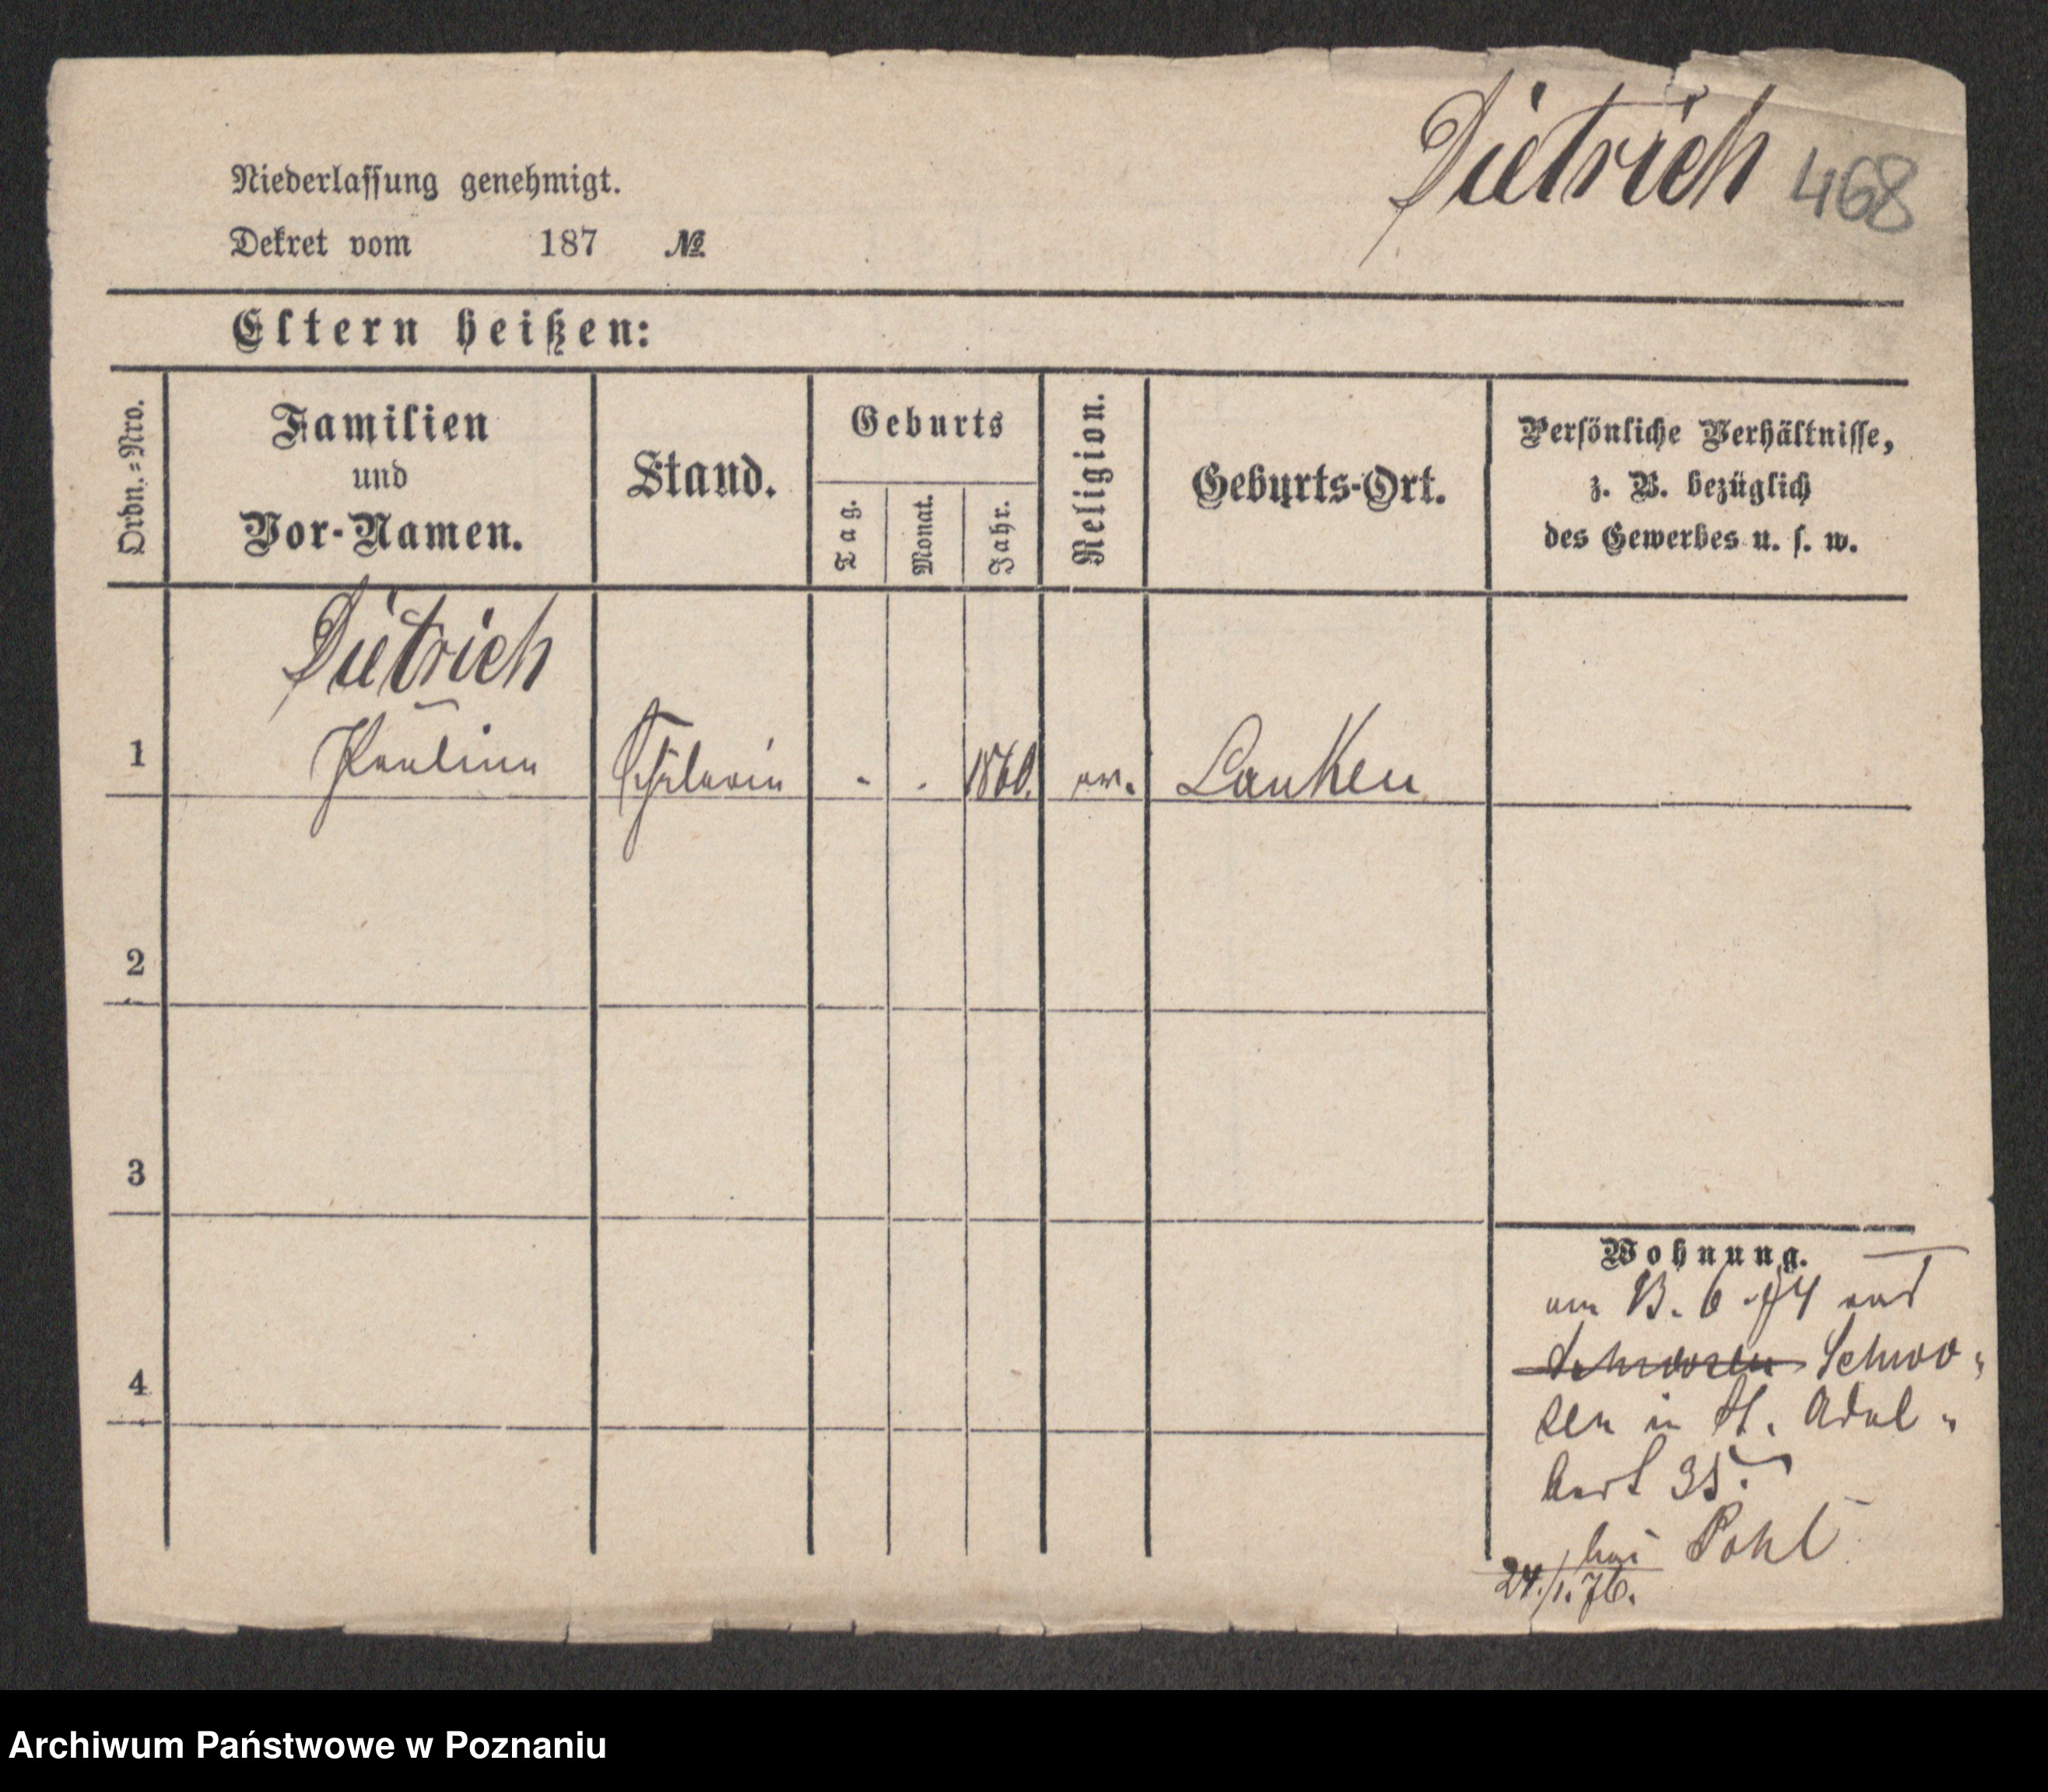 Dietrich 468
Niederlassung genehmigt.
Dekret vom 187 №
Eltern heißen:
Ordn.=Nro.
Familien
und
Vor-Namen.
Stand.
Geburts
Tag.
Monat.
Jahr.
Religion.
Geburts-Ort.
Persönliche Verhältnisse,
z. B. bezüglich
des Gewerbes u. s. w.
Dietrich
1 Pauline Schülerin - - 1860. ev. Lauken
2
3
4
Wohnung.
am 13. 6. 74 aus
Schwo=
sen in St. Adal=
bert 35.
bei Pohl
24./1.76.